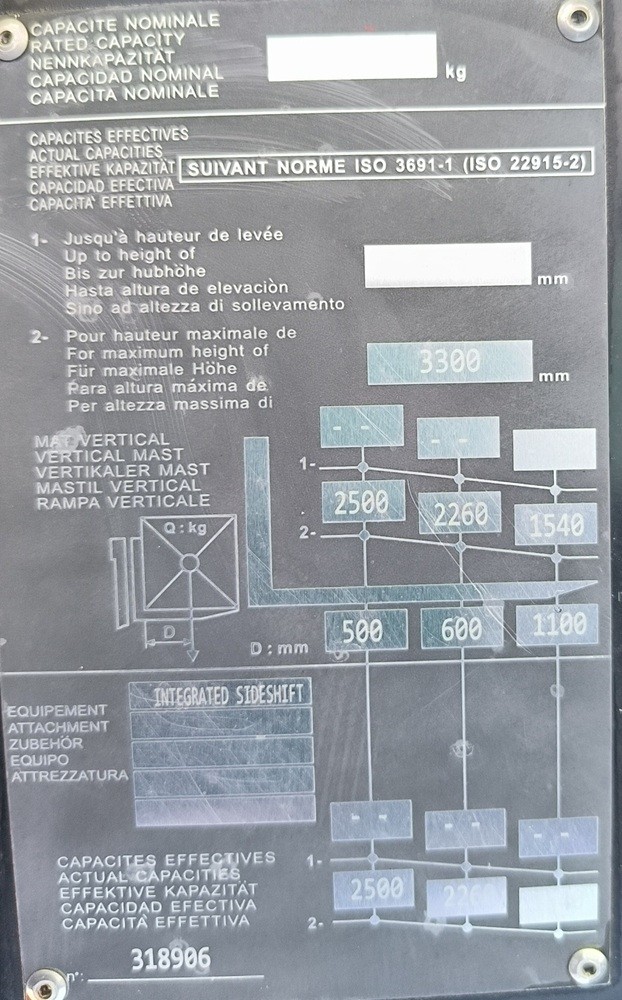 CAPACITE NOMINALE
RATED CAPACITY
NENNKAPAZITÄT
CAPACIDAD NOMINAL
CAPACITA NOMINALE
kg
CAPACITES EFFECTIVES
ACTUAL CAPACITIES
EFFEKTIVE KAPAZITÄT
CAPACIDAD EFECTIVA
CAPACITA' EFFETTIVA
SUIVANT NORME ISO 3691-1 (ISO 22915-2)
1- Jusqu'à hauteur de levée
Up to height of
Bis zur hubhöhe
Hasta altura de elevaciòn
Sino ad altezza di sollevamento
mm
2- Pour hauteur maximale de
For maximum height of
Für maximale Höhe
Para altura máxima de
Per altezza massima di
3300 mm
MAT VERTICAL
VERTICAL MAST
VERTIKALER MAST
MASTIL VERTICAL
RAMPA VERTICALE
- - - -
1-
2500 2260 1540
2-
Q : kg
D
D : mm 500 600 1100
EQUIPEMENT
ATTACHMENT
ZUBEHÖR
EQUIPO
ATTREZZATURA
INTEGRATED SIDESHIFT
- - - - - -
CAPACITES EFFECTIVES
ACTUAL CAPACITIES
EFFEKTIVE KAPAZITÄT
CAPACIDAD EFECTIVA
CAPACITÀ EFFETTIVA
1-
2500 2260
2-
n°: 318906